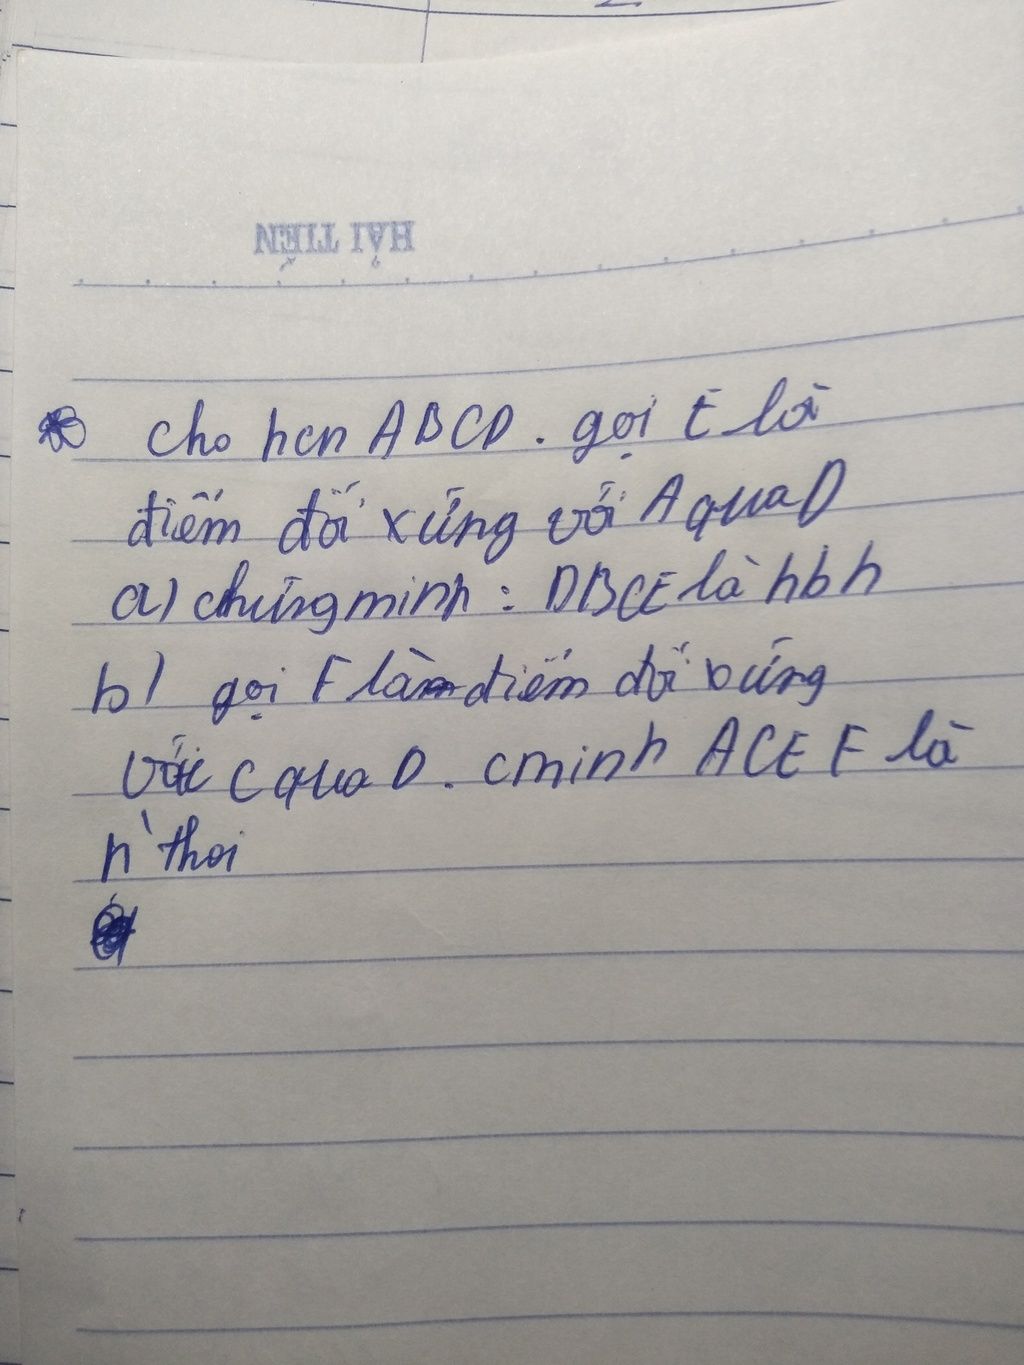 HẢI TIẾN
Cho hcn ABCD. gọi E là
điểm đối xứng với A qua D
a) chứng minh : DBCE là hbh
b) gọi F là điểm đối xứng
với C qua D. cminh ACEF là
h` thoi